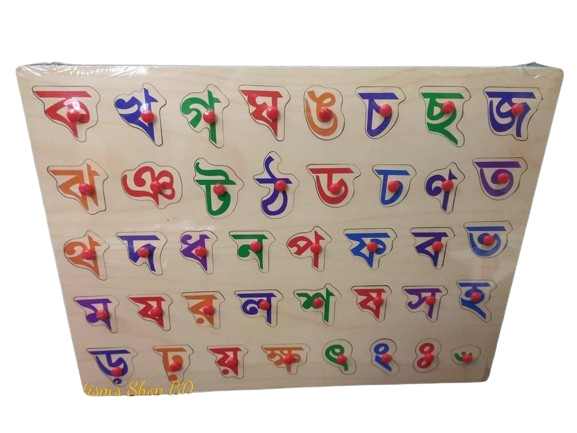 ক খ গ ঘ ঙ চ ছ জ
ঝ ঞ ট ঠ ড ঢ ণ ত
থ দ ধ ন প ফ ব ভ
ম য র ল শ ষ স হ
ড় ঢ় য় ক্ষ ৎ ং ঃ ঁ
Shop BD